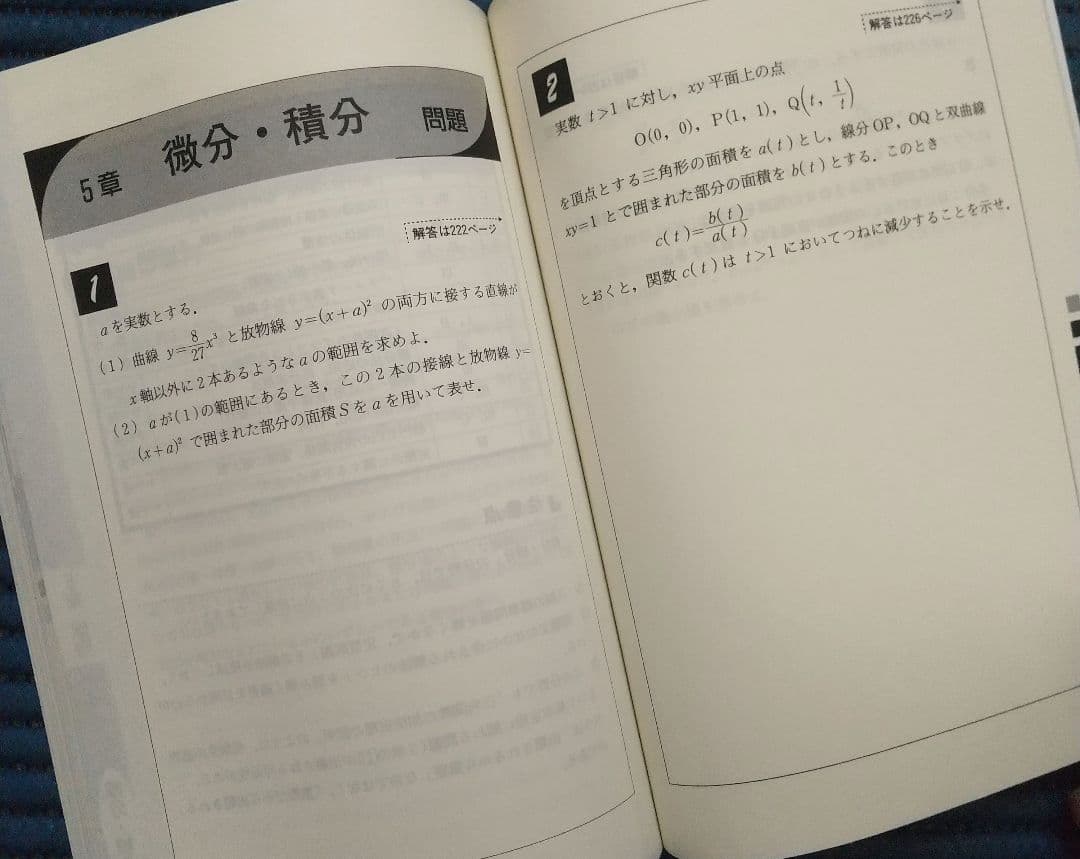 5章 微分・積分 問題
解答は222ページ
1
aを実数とする.
(1) 曲線 y=8/27x³ と放物線 y=(x+a)² の両方に接する直線が
x軸以外に2本あるようなaの範囲を求めよ.
(2) aが(1)の範囲にあるとき, この2本の接線と放物線 y=
(x+a)² で囲まれた部分の面積Sをaを用いて表せ.
解答は226ページ
2
実数 t>1 に対し, xy平面上の点
O(0, 0), P(1, 1), Q(t, 1/t)
を頂点とする三角形の面積を a(t) とし, 線分OP, OQと双曲線
xy=1 とで囲まれた部分の面積を b(t) とする. このとき
c(t)=b(t)/a(t)
とおくと, 関数 c(t) は t>1 においてつねに減少することを示せ.